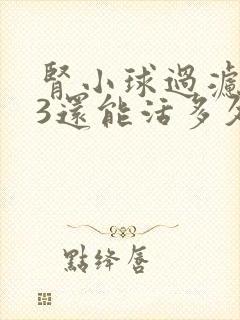 腎小球過濾
3還能活多久
點絳唇